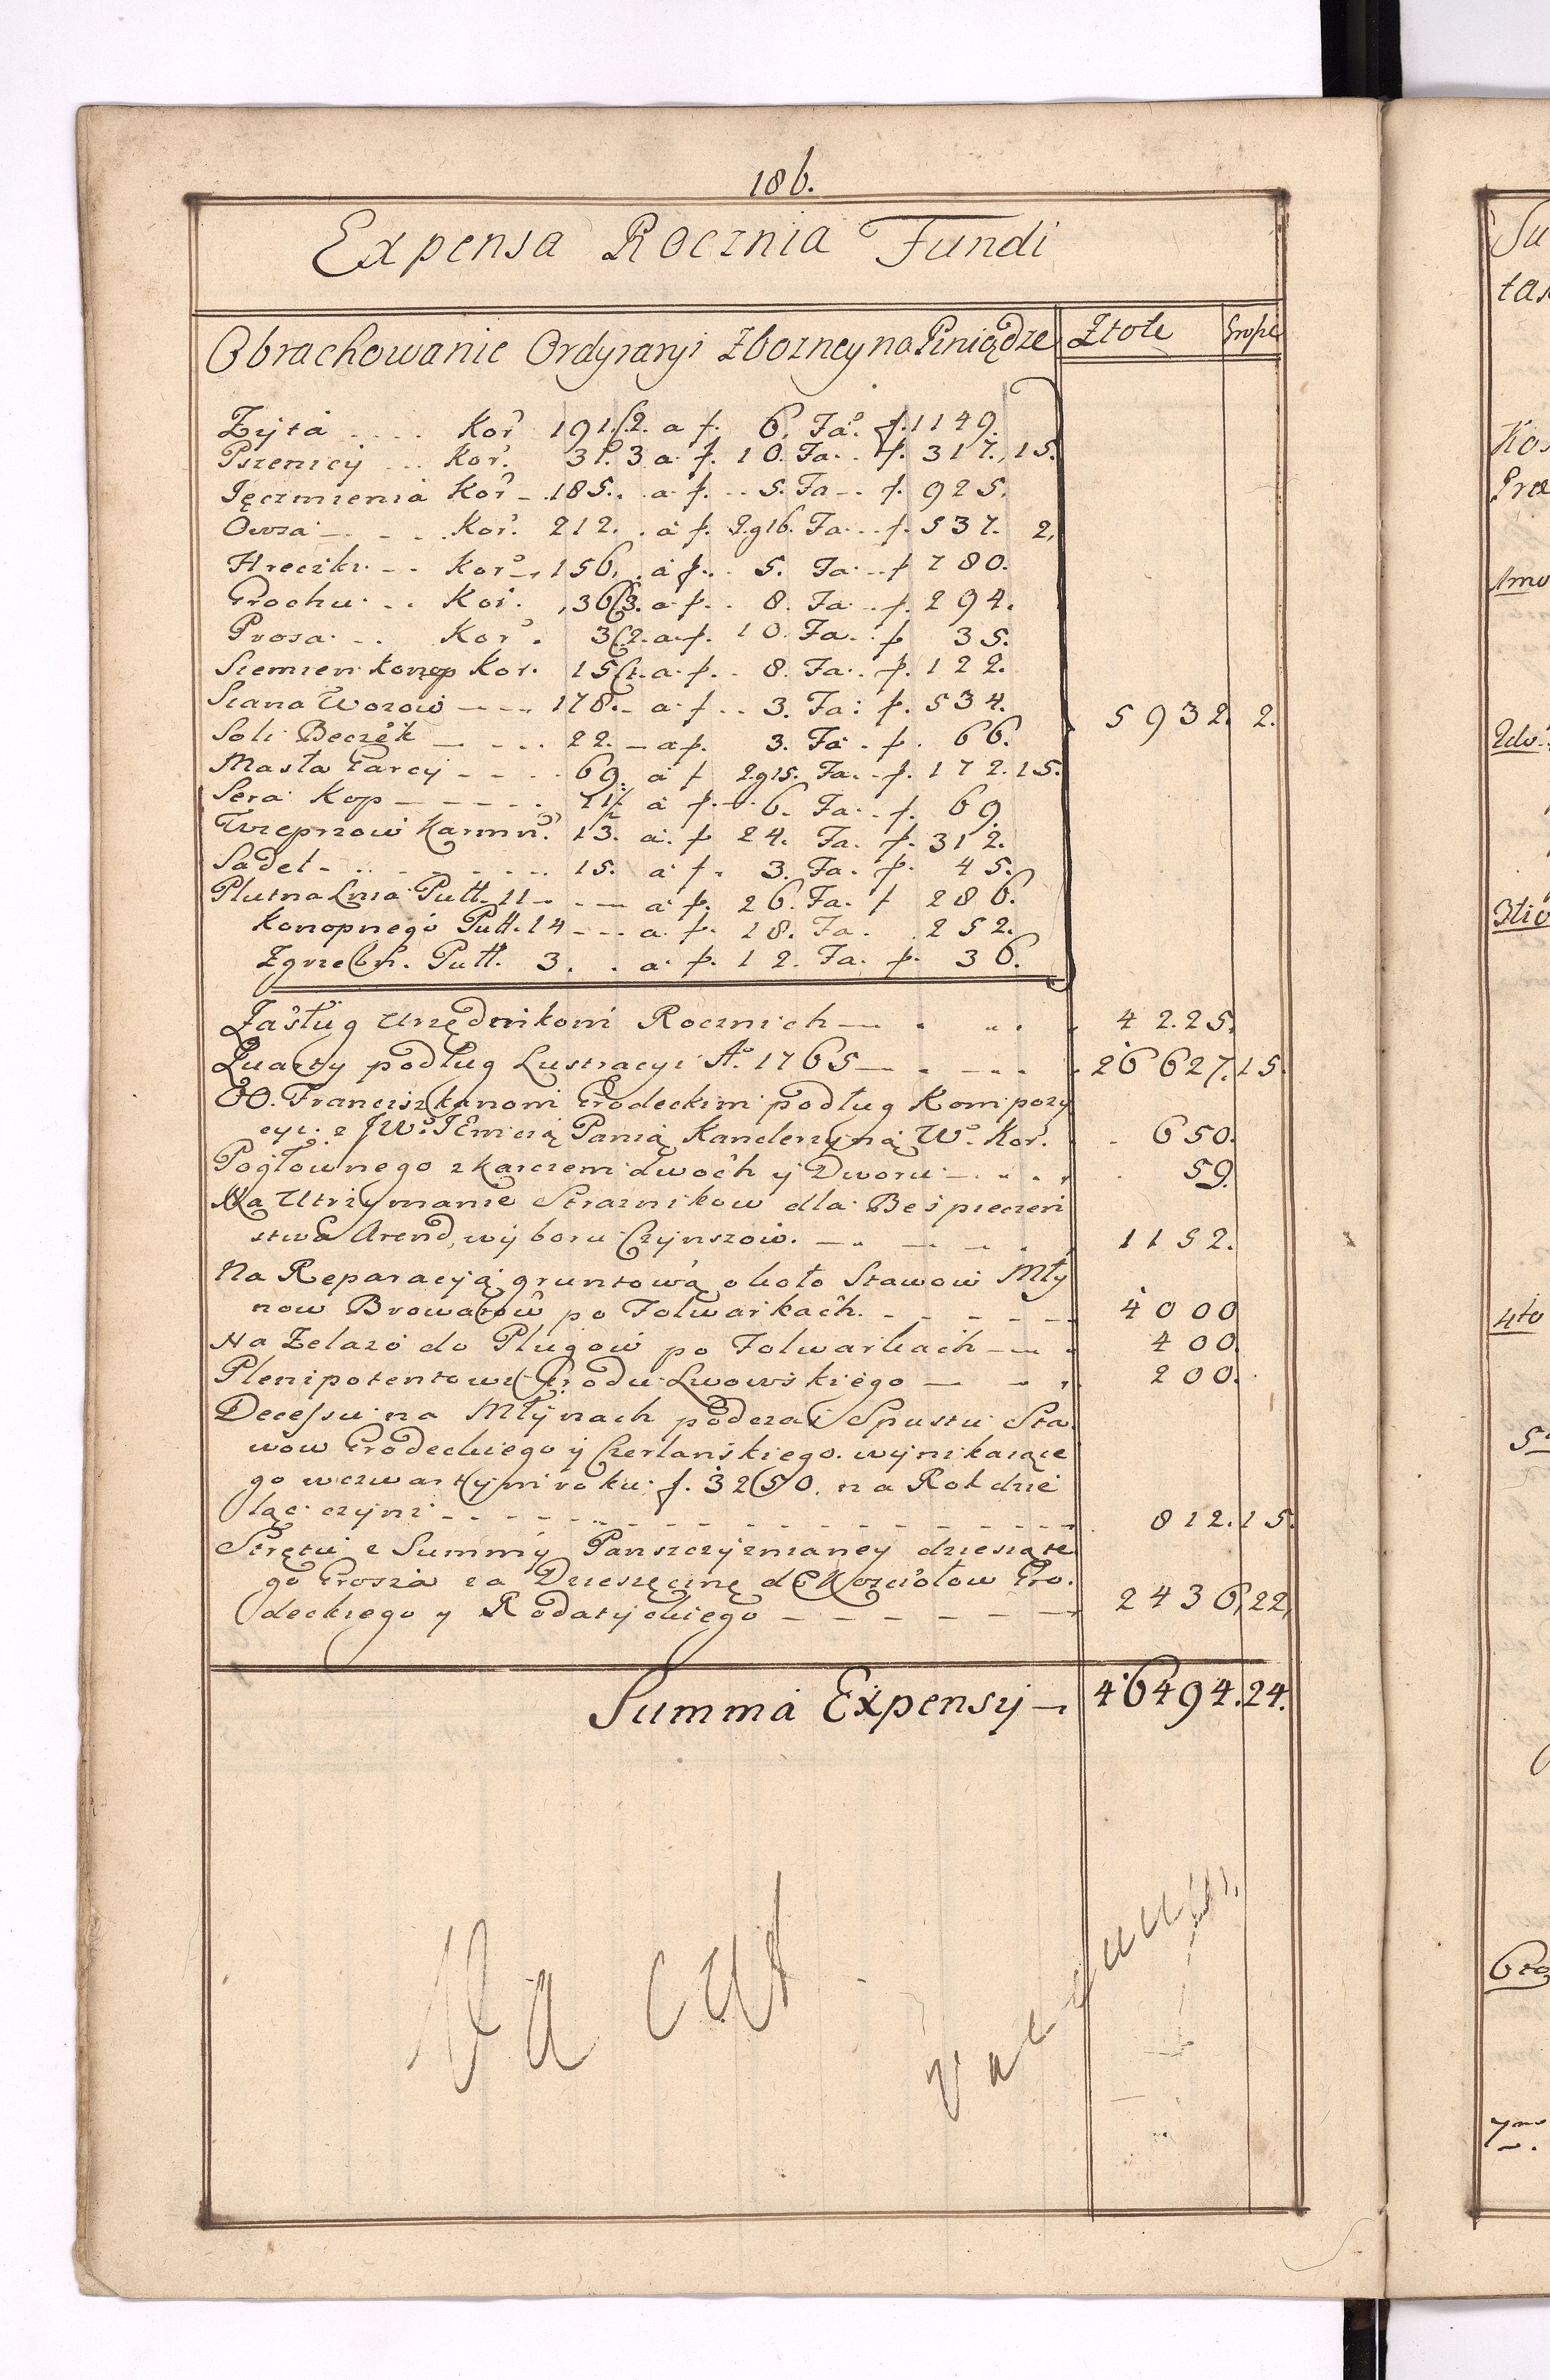 186.
Expensa Rocznia Fundi
Obrachowanie Ordynaryi Zbozney na Piniądze Złote Grosze
Zyta .... Kor 191./2. a f. 6. Fa. f. 1149.
Pszenicy ... Kor. 31. 3 a. f. 10. Fa.. f. 317., 15.
Jęczmienia Kor - 185.. a. f. .. 5. Fa -. f. 925.
Owsa - . - . Kor. 212. . a f. 2. g 16. Fa... f. 537. 2.
Hreczki. - . Kor -. 156. . a f.. 5. Fa. .. f 780.
Grochu. .. Kor. 36/3. a. f. . 8. Fa. .. f. 294.
Prosa. .. Kor. 3/2. a. f. 10. Fa.. f 35.
Siemien Konop Kor. 15/1. a. f. . 8. Fa.. f. 122.
Siana Wozow - - - 178. - a. f. .. 3. Fa: f. 534. 5932. 2.
Soli Beczek - . - .. 22. - a f. 3. Fa . f. 66.
Masła Garcy - - . - 69. a f 2. g 15. Fa. - f. 172. 15.
Sera Kop - - - - - . 11/2 a f. - . 6. Fa. . f. 69.
Wieprzow Karmn. 13. a. f 24. Fa. f. 312.
Sadeł - . . . . . . . 15. a f. 3. Fa. f. 45.
Płutna Lnia Putt. 11 - - - a f. 26. Fa. f 286.
Konopnego Putt. 14 - - - a. f. 18. Fa. . 252.
Zgrzebn. Putt. 3. . . a f. 12. Fa. f. 36.
Zasług Urzędnikom Rocznich - . .. . 4225.
Quarty podług Lustracyi A. 1765 - . - .. 26627. 15.
OO. Franciszkanom Grodeckim podług Kompozy
cyi. z JW. JEmcią Panią Kanclerzyną W. Kor. . 650.
Pogłownego z karczem dwoch y Dworu - . . . 59.
Na Utrzymanie Straznikow dla Bespieczen
stwa Arend, wyboru Czynszow. - . - - . 1152.
Na Reparacyią gruntową około Stawow Mły
now Browarow po Folwarkach. - - - - - 4000
Na Zelazo do Pługow po Folwarkach - - . 400.
Plenipotentowi Grodu Lwowskiego - - . 200.
Decessu na Młynach podczas Spustu Sta
wow Grodeckiego y Czerlanskiego. wynikaiące
go w czwartym roku f. 3250. na Rok dzie
ląc czyni - - - - - - - - 812. 15.
Strętu z Summy Panszczyznianey dziesiąte
go Grosza za Dziesięcinę do Kosciołow Gro.
deckiego y Rodatyckiego - - - - - - 2436, 22,
Summa Expensy - 46494. 24.
Vacat